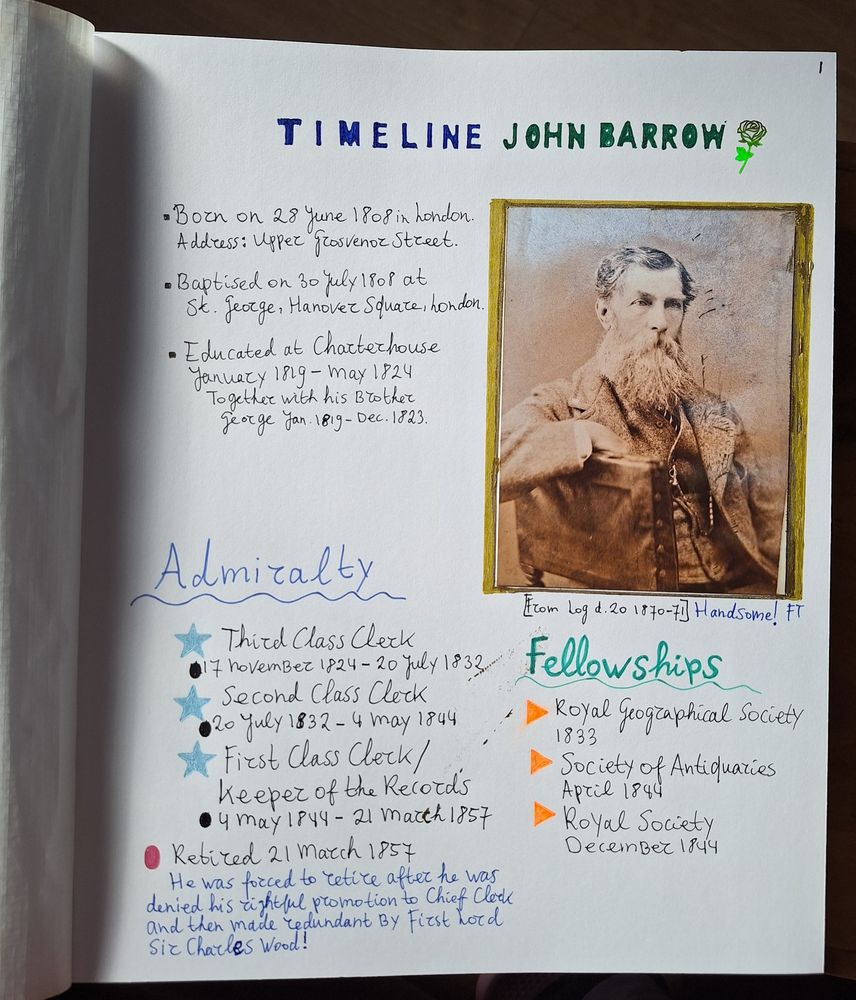 1
TIMELINE JOHN BARROW
Born on 28 June 1808 in London.
Address: Upper Grosvenor Street.
Baptised on 30 July 1808 at
St. George, Hanover Square, London.
Educated at Charterhouse
January 1819 – May 1824
Together with his Brother
George Jan. 1819 – Dec. 1823.
[From Log d. 20 1870-71] Handsome! FT
Admiralty
Third Class Clerk
17 November 1824 – 20 July 1832
Second Class Clerk
20 July 1832 – 4 May 1844
First Class Clerk/
Keeper of the Records
4 May 1844 – 21 March 1857
Retired 21 March 1857
He was forced to retire after he was
denied his rightful promotion to Chief Clerk
and then made redundant By First Lord
Sir Charles Wood!
Fellowships
Royal Geographical Society
1833
Society of Antiquaries
April 1844
Royal Society
December 1844